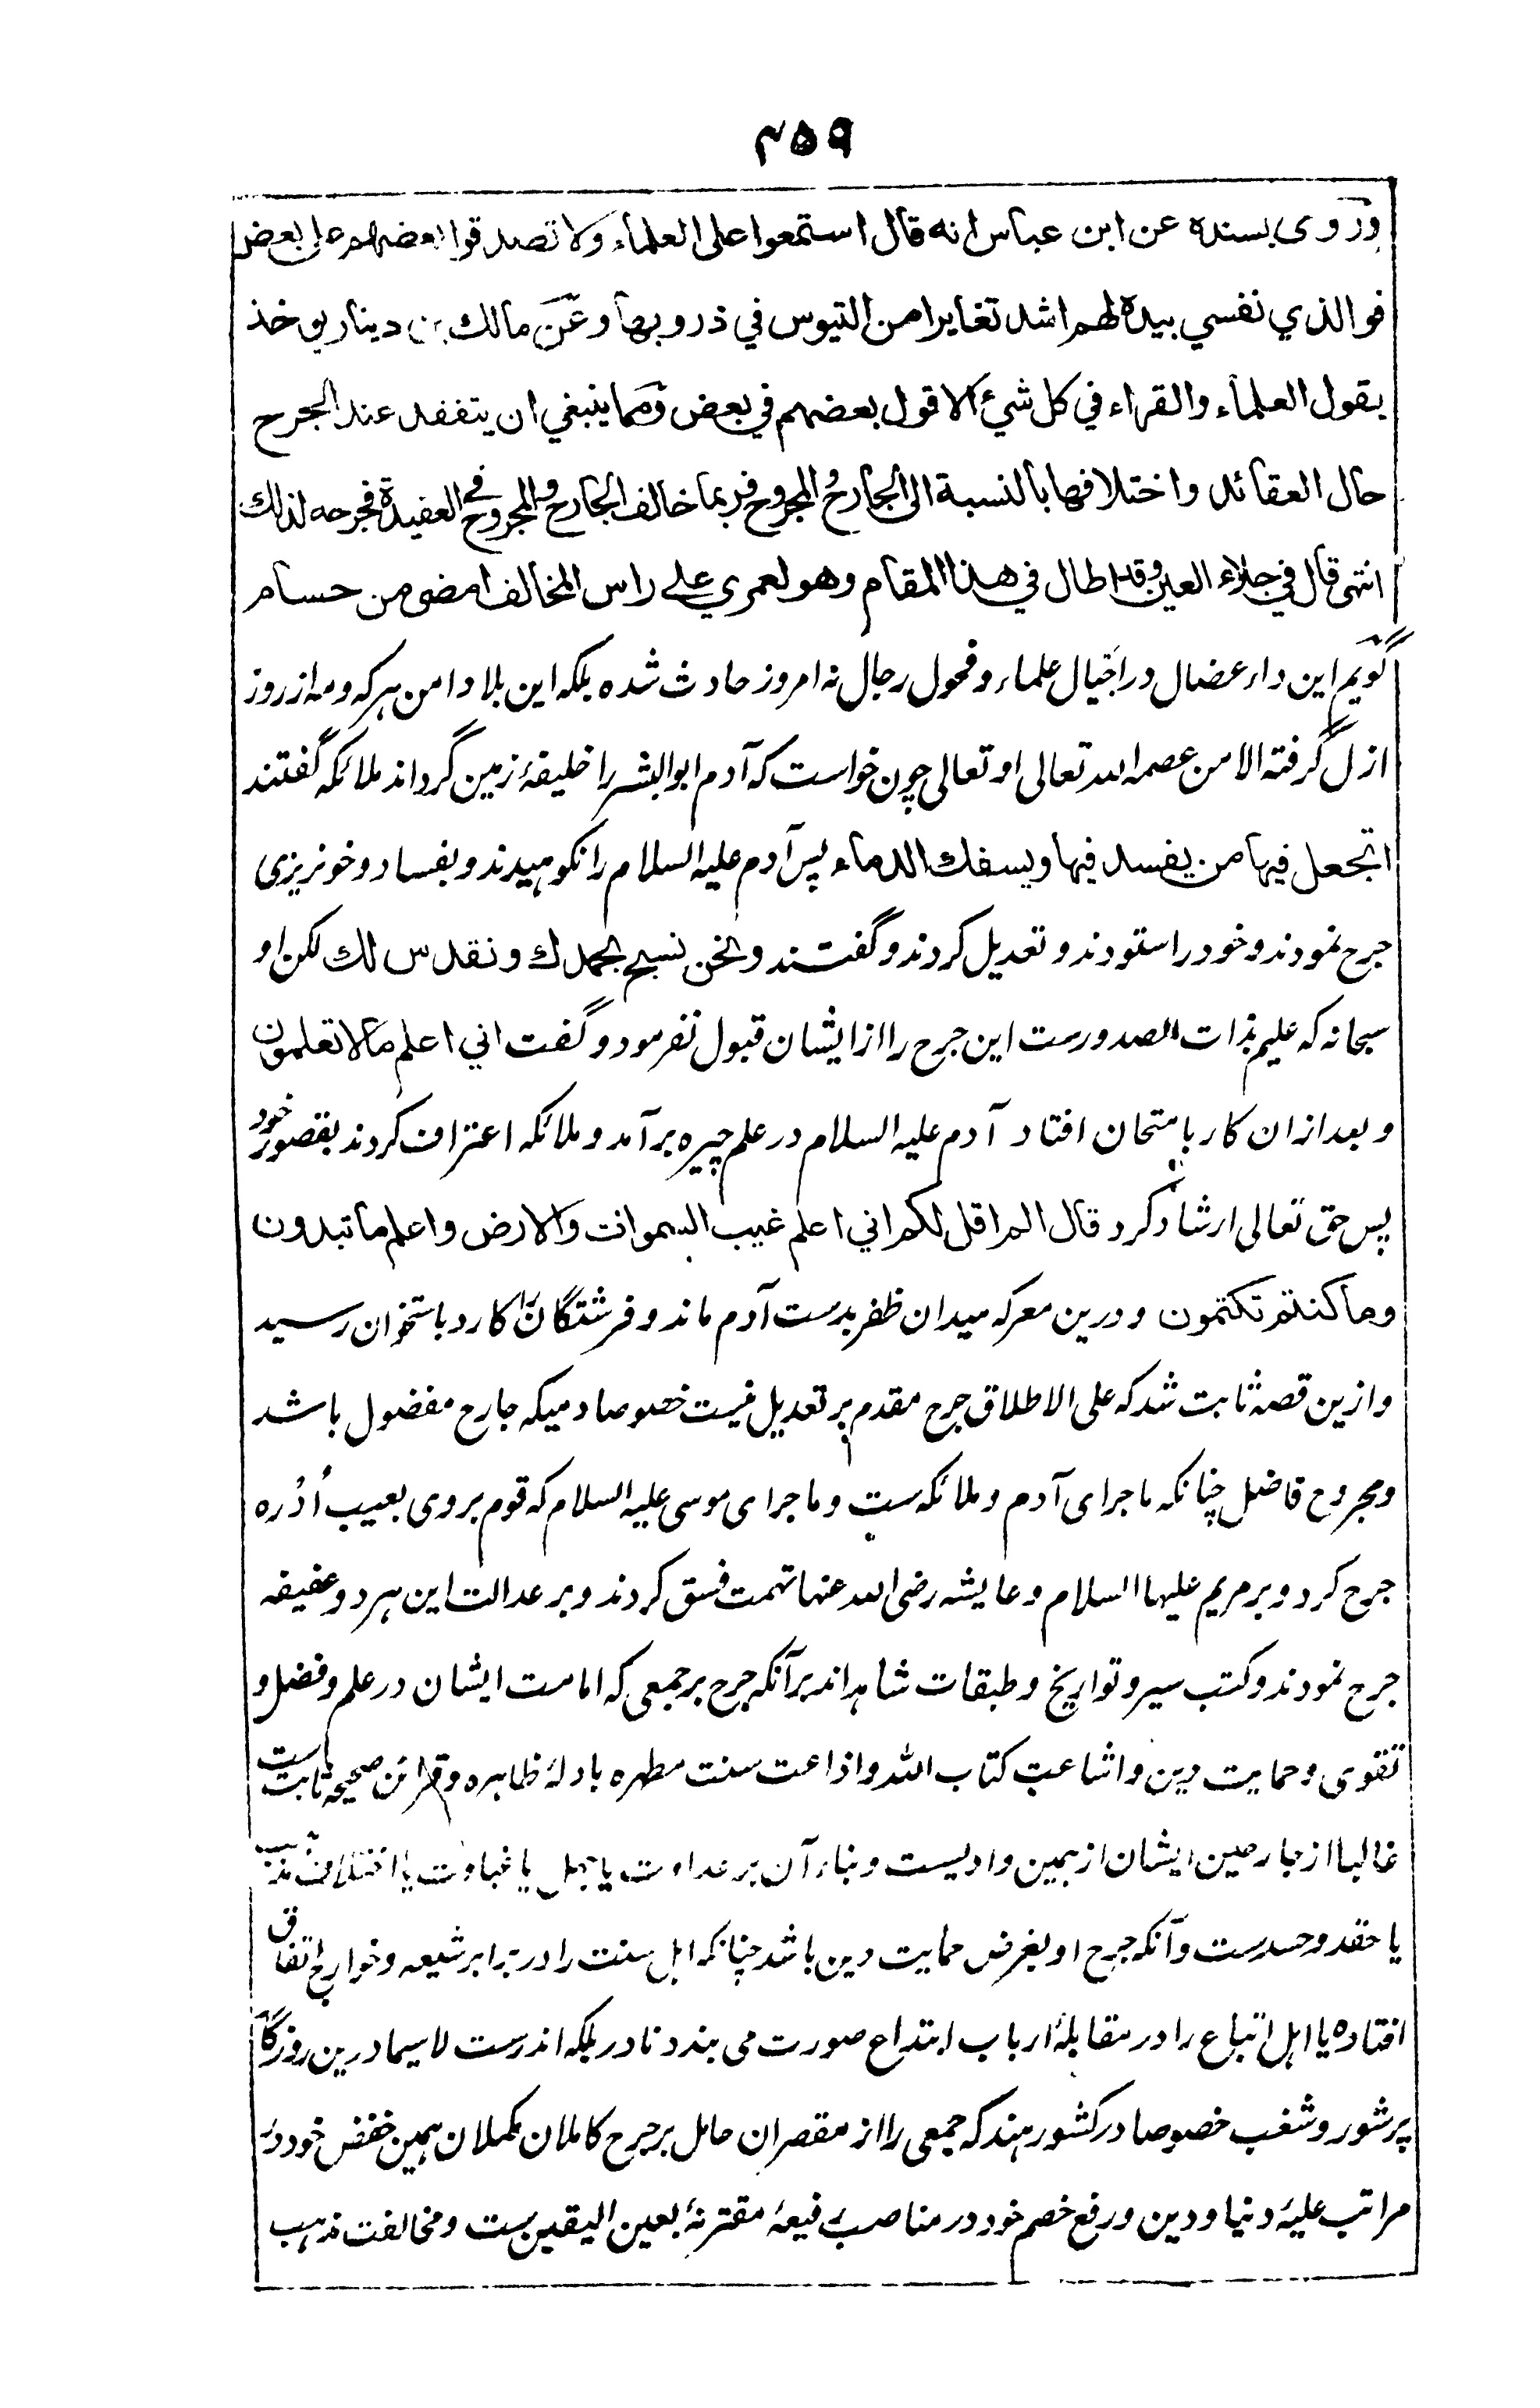 ۴۵۹
وروى بسنده عن ابن عباس انه قال استمعوا على العلماء ولا تصدقوا بعضهم على بعض
فوالذي نفسي بيده لهم اشد تغايرا من التيوس في ذروبها وعن مالك بن دينار يوخذ
بقول العلماء والقراء في كل شيء الا قول بعضهم في بعض ومما ينبغي ان يتفقد عند الجرح
حال العقائد واختلافها بالنسبة الى الجارح والمجروح فربما خالف الجارح والمجروح في العقيدة فجرحه لذلك
انتهى قال في جلاء العين وقد اطال في هذا المقام وهو لعمري على راس المخالف امضى من حسام
گویم این داء عضال در اخیال علماء و فحول رجال نه امروز حادث شده بلکه این بلا دامن هر که ومه از روز
ازل گرفته الا من عصمه الله تعالی او تعالی چون خواست که آدم ابوالبشر را خلیفهٔ زمین گرداند ملائکه گفتند
اتجعل فيها من يفسد فيها ويسفك الدماء پس آدم علیه السلام را نکوهیدند و بفساد و خونریزی
جرح نمودند و خود را ستودند و تعدیل کردند و گفتند ونحن نسبح بحمدك ونقدس لك لکن او
سبحانه که علیم بذات الصدورست این جرح را از ایشان قبول نفرمود و گفت اني اعلم ما لا تعلمون
و بعد ازان کار بامتحان افتاد آدم علیه السلام در علم چیره برآمد و ملائکه اعتراف کردند بقصور خود
پس حق تعالی ارشاد کرد قال الم اقل لكم اني اعلم غيب السموات والارض واعلم ما تبدون
وما كنتم تكتمون و درین معرکه میدان ظفر بدست آدم ماند و فرشتگان را کارد باستخوان رسید
و ازین قصه ثابت شد که علی الاطلاق جرح مقدم بر تعدیل نیست خصوصا دمیکه جارح مفضول باشد
و مجروح فاضل چنانکه ماجرای آدم و ملائکه ست و ماجرای موسی علیه السلام که قوم بر وی بعیب اُدره
جرح کرد و بر مریم علیها السلام و عایشه رضی الله عنها تهمت فسق کردند و بر عدالت این هر دو عفیفه
جرح نمودند و کتب سیر و تواریخ و طبقات شاهد اند بر آنکه جرح بر جمعی که امامت ایشان در علم و فضل و
تقوی و حمایت دین و اشاعت کتاب الله و اذاعت سنت مطهره بادلهٔ ظاهره و قرائن صحیحه ثابت ست
غالبا از جارحین ایشان از همین وادیست و بناء آن بر عداوت یا جهل یا غباوت یا اختلاف مذهب
یا حقد و حسدست و آنکه جرح او بغرض حمایت دین باشد چنانکه اهل سنت را در برابر شیعه و خوارج اتفاق
افتاده یا اهل اتباع را در مقابلهٔ ارباب ابتداع صورت می بندد نادر بلکه اندرست لا سیما درین روزگار
پرشور و شغب خصوصا در کشور هند که جمعی را از مقصران حامل بر جرح کاملان مکملان همین خفض خود در
مراتب علیهٔ دنیا و دین و رفع خصم خود در مناصب رفیعهٔ مقترنهٔ بعین الیقین ست و مخالفت مذهب